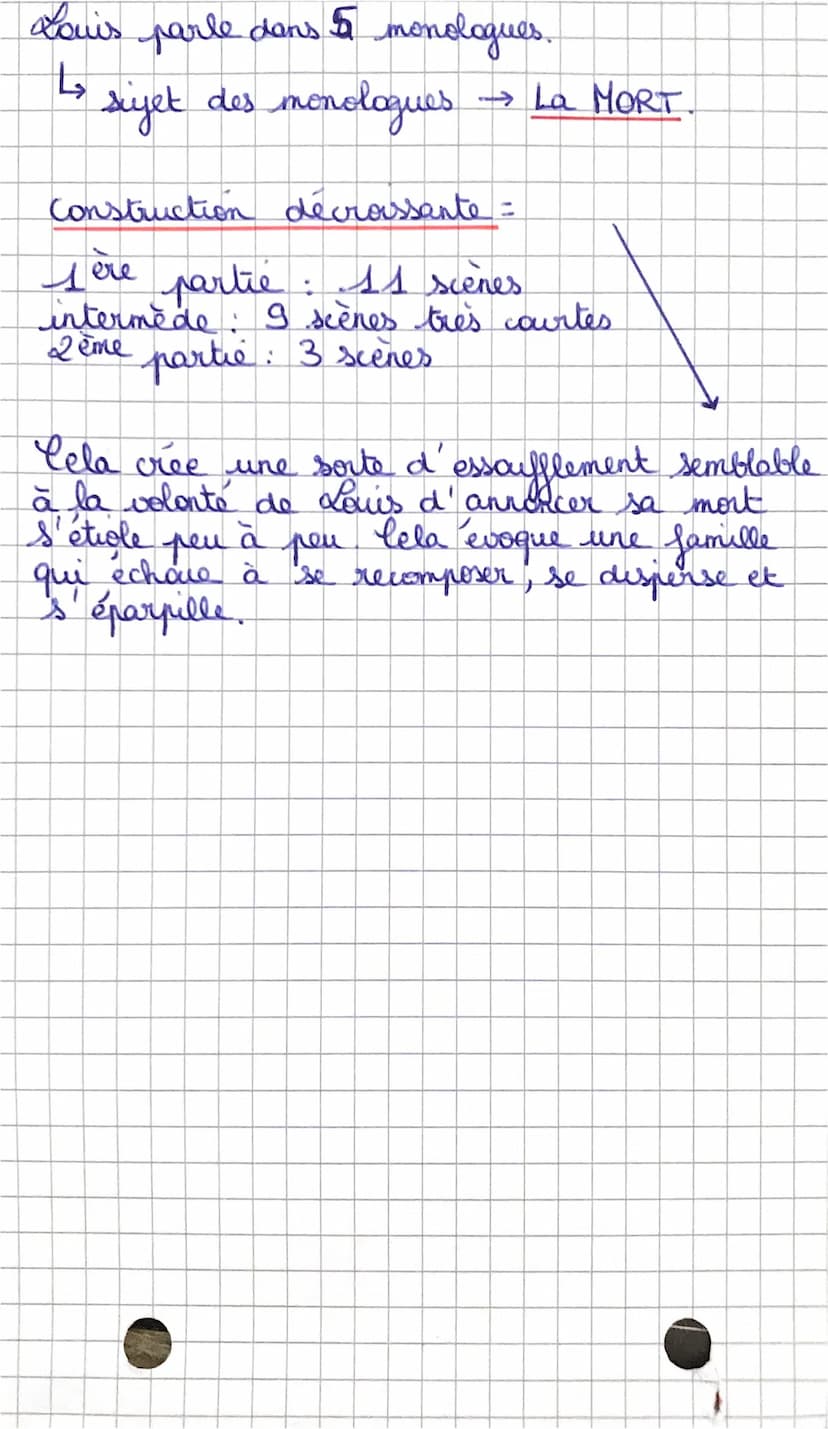 Louis parle dans 5 monologues.
↳ sujet des monologues → La MORT.
Construction décroissante =
1ère partie : 11 scènes
intermède : 9 scènes très courtes
2ème partie : 3 scènes
Cela crée une sorte d'essoufflement semblable
à la volonté de Louis d'annoncer sa mort
s'étiole peu à peu. Cela évoque une famille
qui échoue à se recomposer, se disperse et
s'éparpille.